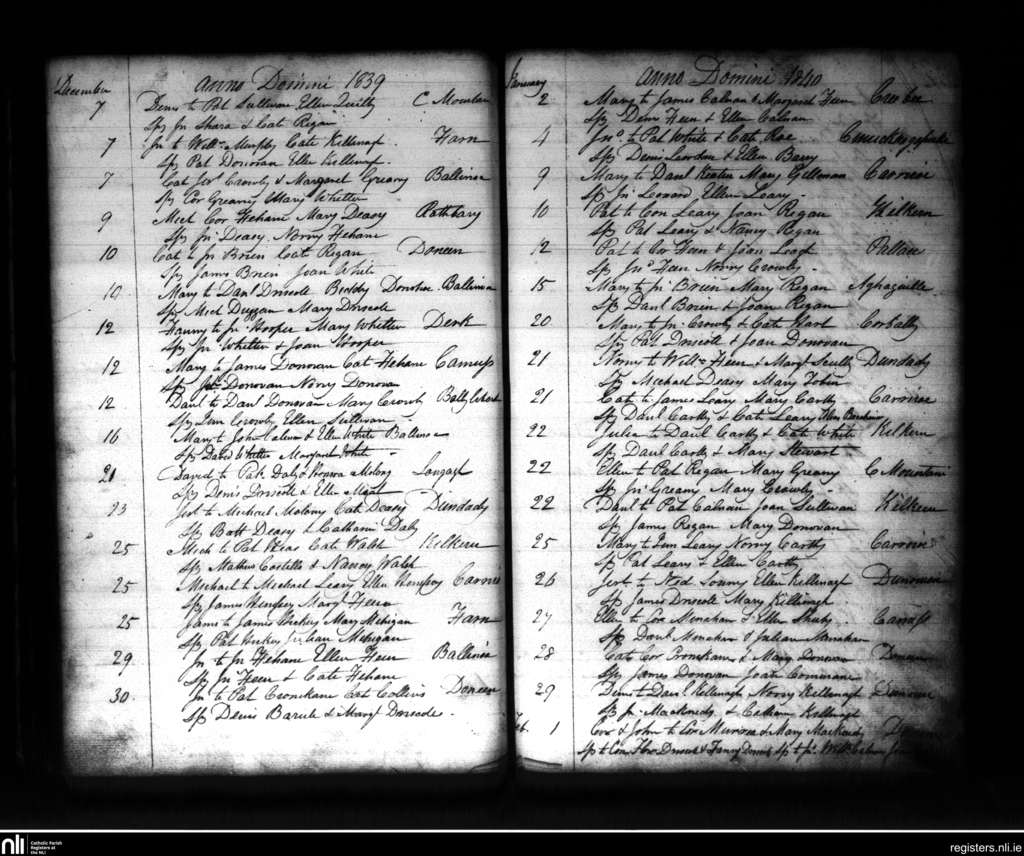 December Anno Domini 1839
7 Denis to Pat Sullivan Ellen Quilty C Mountain
Sp Jn Shara & Cat Regan
7 Jn to Willm Murphy Cate Killenagh Farn
Sp Pat Donovan Ellen Killenagh
7 Cat Jer Crowly & Margaret Greany Ballinoa
Sp Cor Greany Mary Whelton
9 Mich Cor Hehane Mary Deasy Rathbary
Sp Jn Deasy Norry Hehane
10 Cat to Jn Brien Cate Regan Doneen
Sp James Brien Joan White
10 Mary to Danl Driscole Biddy Donohue Ballinoa
Sp Mich Duggan Mary Driscole
12 Fanny to Jn Hooper Mary Whelton Derk
Sp Jn Whelton & Joan Hooper
12 Mary to James Donovan Cat Hehane Camus
Sp Donovan Norry Donovan
12 Danl to Danl Donovan Mary Crowly
Sp Crowly Ellen Sullivan
16 Mary to John & Ellen White Ballinoa
Sp David Whelton Margaret White
21 David to Pat Daly & Honora Molony
Sp Denis Driscole & Ellen
23 Jer to Michael Molony Cate Deasy Dundady
Sp Bott Deasy & Catharine Daly
25 Mich to Pat Cate Walsh Kilkern
Sp Mathew Costello & Nancy Walsh
25 Michael to Michael Leary Ellen Hempsey
Sp James Hempsey Mary Heen
25 James to James Hickey Mary Mehigan Farn
Sp Pat Hickey Julian Mehigan
29 Jn to Jn Hehane Ellen Heen Ballinoa
Sp Jn Heen & Cate Hehane
30 Jn to Pat Cronekane Cat Collins Doneen
Sp Denis & Mary Driscole
January Anno Domini 1840
2 Mary to James Calnan & Margaret Heen
Sp Denis Heen & Ellen Calnan
4 Jno to Pat White & Cate Roe
Sp Denis & Ellen Barry
9 Mary to Danl Keaten Mary Gillman
Sp Jn Leonard Ellen Leary
10 Pat to Con Leary Joan Regan Kilkern
Sp Pat Leary & Nancy Regan
12 Pat to Cor Heen & Joan
Sp Jno Heen Norry Crowly
15 Mary to Jn Brien Mary Regan Aghagville
Sp Danl Brien & Joan Regan
20 Mary to Jn Crowly & Cate Hart Corbally
Sp Pat Driscole & Joan Donovan
21 Norry to Willm Heen & Mary Scully Dundady
Sp Michael Deasy Mary Tobin
21 Cat to James Leary Mary Carthy
Sp Danl Carthy & Cat Leary
22 Julia to Danl Carthy & Cate White Kilkern
Sp Danl Carthy & Mary Stewart
22 Ellen to Pat Regan Mary Greany C Mountain
Sp Jn Greany Mary Crowly
22 Danl to Pat Calnan Joan Sullivan Kilkern
Sp James Regan Mary Donovan
25 Mary to Leary Norry Carthy
Sp Pat Leary & Ellen Carthy
26 Jer to Ned Ellen Killenagh
Sp James Driscole Mary Killenagh
27 Ellen to Cor Monahan & Ellen
Sp Danl Monahan & Julian Monahan
28 Cat Cor Cronekane & Mary Donovan Doneen
Sp James Donovan
29 Denis to Danl Killenagh Norry Killenagh
Sp Jn & Killenagh
Feb. 1 Cor & John to Cor &
Sp to Cor Driscole & Fanny
nli
Catholic Parish
Registers at
the NLI
registers.nli.ie